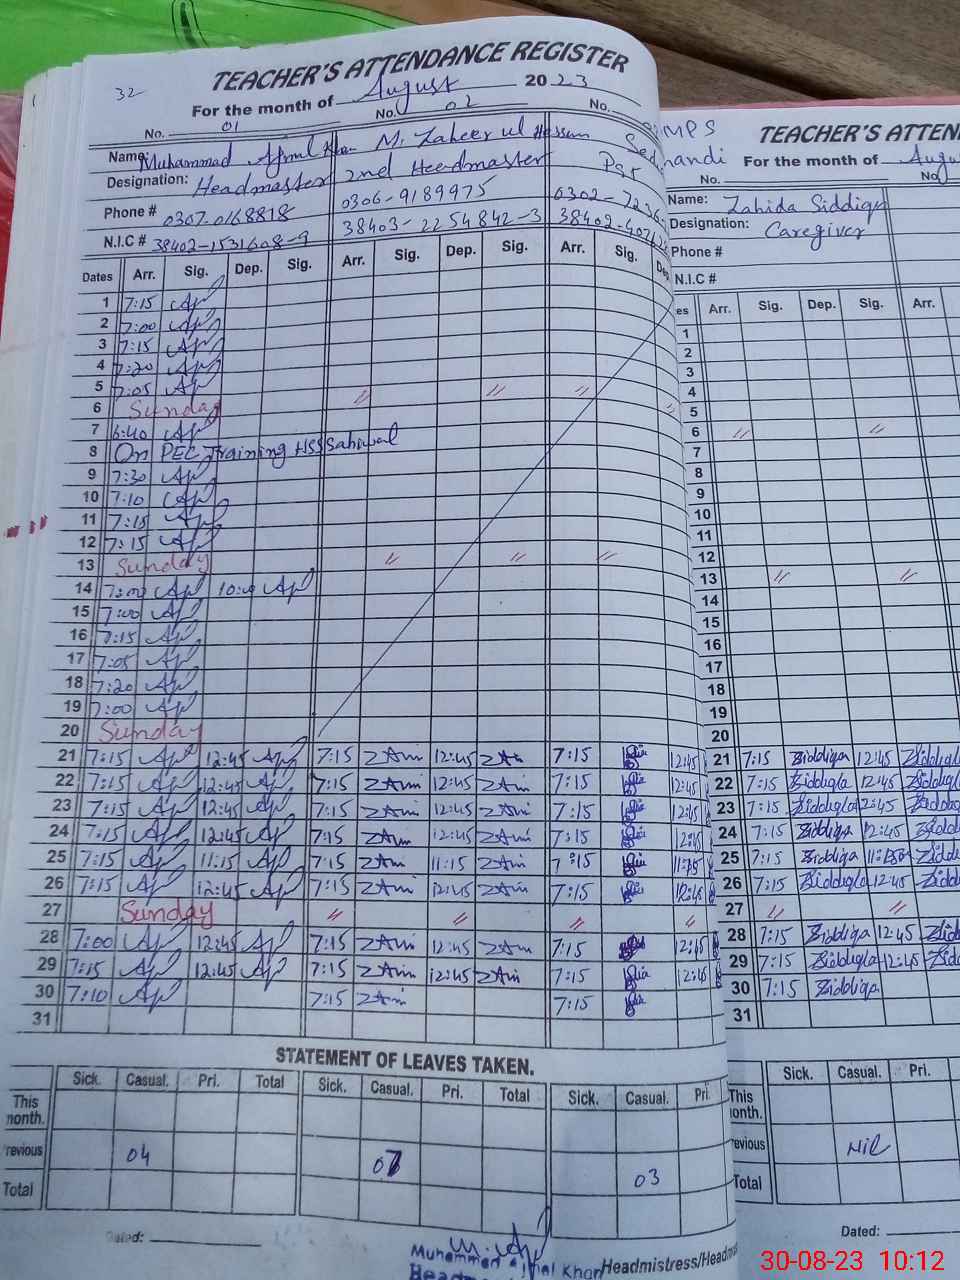 32
TEACHER'S ATTENDANCE REGISTER
For the month of August 2023
No. 01 No. 02 No.
Name: Muhammad Afmal Khan M. Zaheer ul Hassan
Designation: Headmaster 2nd Headmaster PST
Phone # 0307-0168818 0306-9189975 0302-7236
N.I.C # 38402-1531608-9 38403-2254842-3 38402-407
Dates Arr. Sig. Dep. Sig. Arr. Sig. Dep. Sig. Arr. Sig. Dep
1 7:15
2 7:00
3 7:15
4 7:20
5 7:05
6 Sunday // // // //
7 6:40
8 On PEC Training HSS Sahiwal
9 7:30
10 7:10
11 7:15
12 7:15
13 Sunday // // //
14 7:00 10:00
15 7:00
16 7:15
17 7:05
18 7:20
19 7:00
20 Sunday
21 7:15 12:45 7:15 ZAmi 12:45 ZAmi 7:15 12:45
22 7:15 12:45 7:15 ZAmi 12:45 ZAmi 7:15 12:45
23 7:15 12:45 7:15 ZAmi 12:45 ZAmi 7:15 12:45
24 7:15 12:45 7:15 ZAmi 12:45 ZAmi 7:15 12:45
25 7:15 11:15 7:15 ZAmi 11:15 ZAmi 7:15 11:15
26 7:15 12:45 7:15 ZAmi 12:45 ZAmi 7:15 12:45
27 Sunday // // // //
28 7:00 12:45 7:15 ZAmi 12:45 ZAmi 7:15 12:45
29 7:15 12:45 7:15 ZAmi 12:45 ZAmi 7:15 12:45
30 7:10 7:15 ZAmi 7:15
31
STATEMENT OF LEAVES TAKEN.
Sick. Casual. Pri. Total Sick. Casual. Pri. Total Sick. Casual. Pri.
This month.
revious 04 07 03
Total
Dated:
Muhammad Afmal Khan Headmistress/Headm
Headm
GMPS
Sedhandi
TEACHER'S ATTEN
For the month of August
No. No
Name: Zahida Siddiqa
Designation: Caregiver
Phone #
N.I.C #
es Arr. Sig. Dep. Sig. Arr.
1
2
3
4
5
6 // //
7
8
9
10
11
12
13 // //
14
15
16
17
18
19
20
21 7:15 Ziddiqa 12:45 Ziddiqa
22 7:15 Ziddiqa 12:45 Ziddiqa
23 7:15 Ziddiqa 12:45 Ziddiqa
24 7:15 Ziddiqa 12:45 Ziddiqa
25 7:15 Ziddiqa 11:15 Ziddi
26 7:15 Ziddiqa 12:45 Ziddi
27 // //
28 7:15 Ziddiqa 12:45 Ziddi
29 7:15 Ziddiqa 12:45 Ziddi
30 7:15 Ziddiqa
31
Sick. Casual. Pri.
This month.
evious Nil
Total
Dated:
30-08-23 10:12